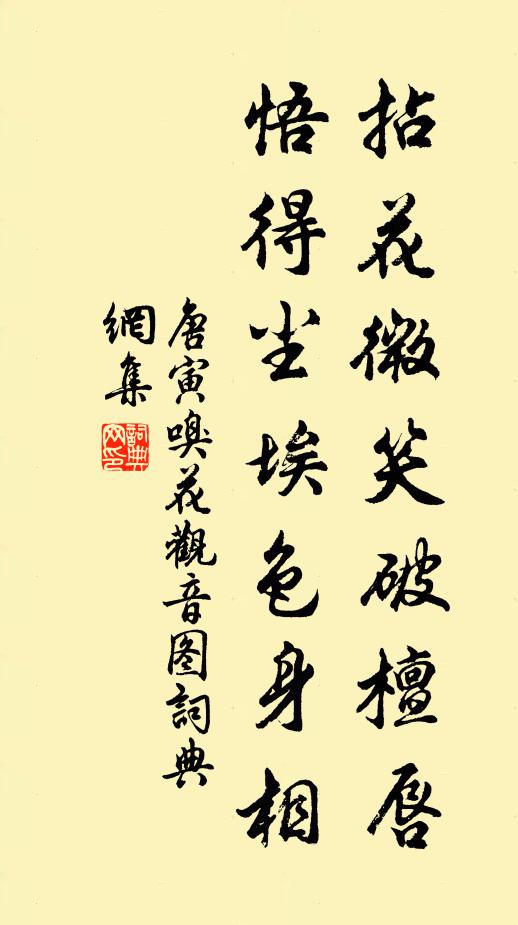 拈花微笑破檀唇
悟得尘埃色身相
唐寅嗅花觀音图詞典
網集
詞典
网印